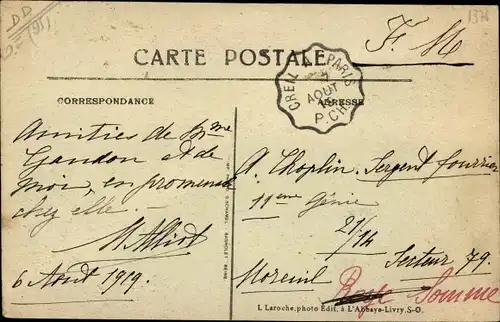 DD
(95)
1376
F. M
CARTE POSTALE
CREIL A PARIS
AOUT
P. CH.
CORRESPONDANCE
ADRESSE
Amitiés de Mme
Gandon et de
moi, en promenade
chez elle. -
M. Alliot
6 Août 1919.
A. Choplin. Sergent fourrier
11eme Génie
21/14
Secteur 79.
Moreuil
Somme
L. Laroche, photo Edit., à L'Abbaye-Livry, S.-O.